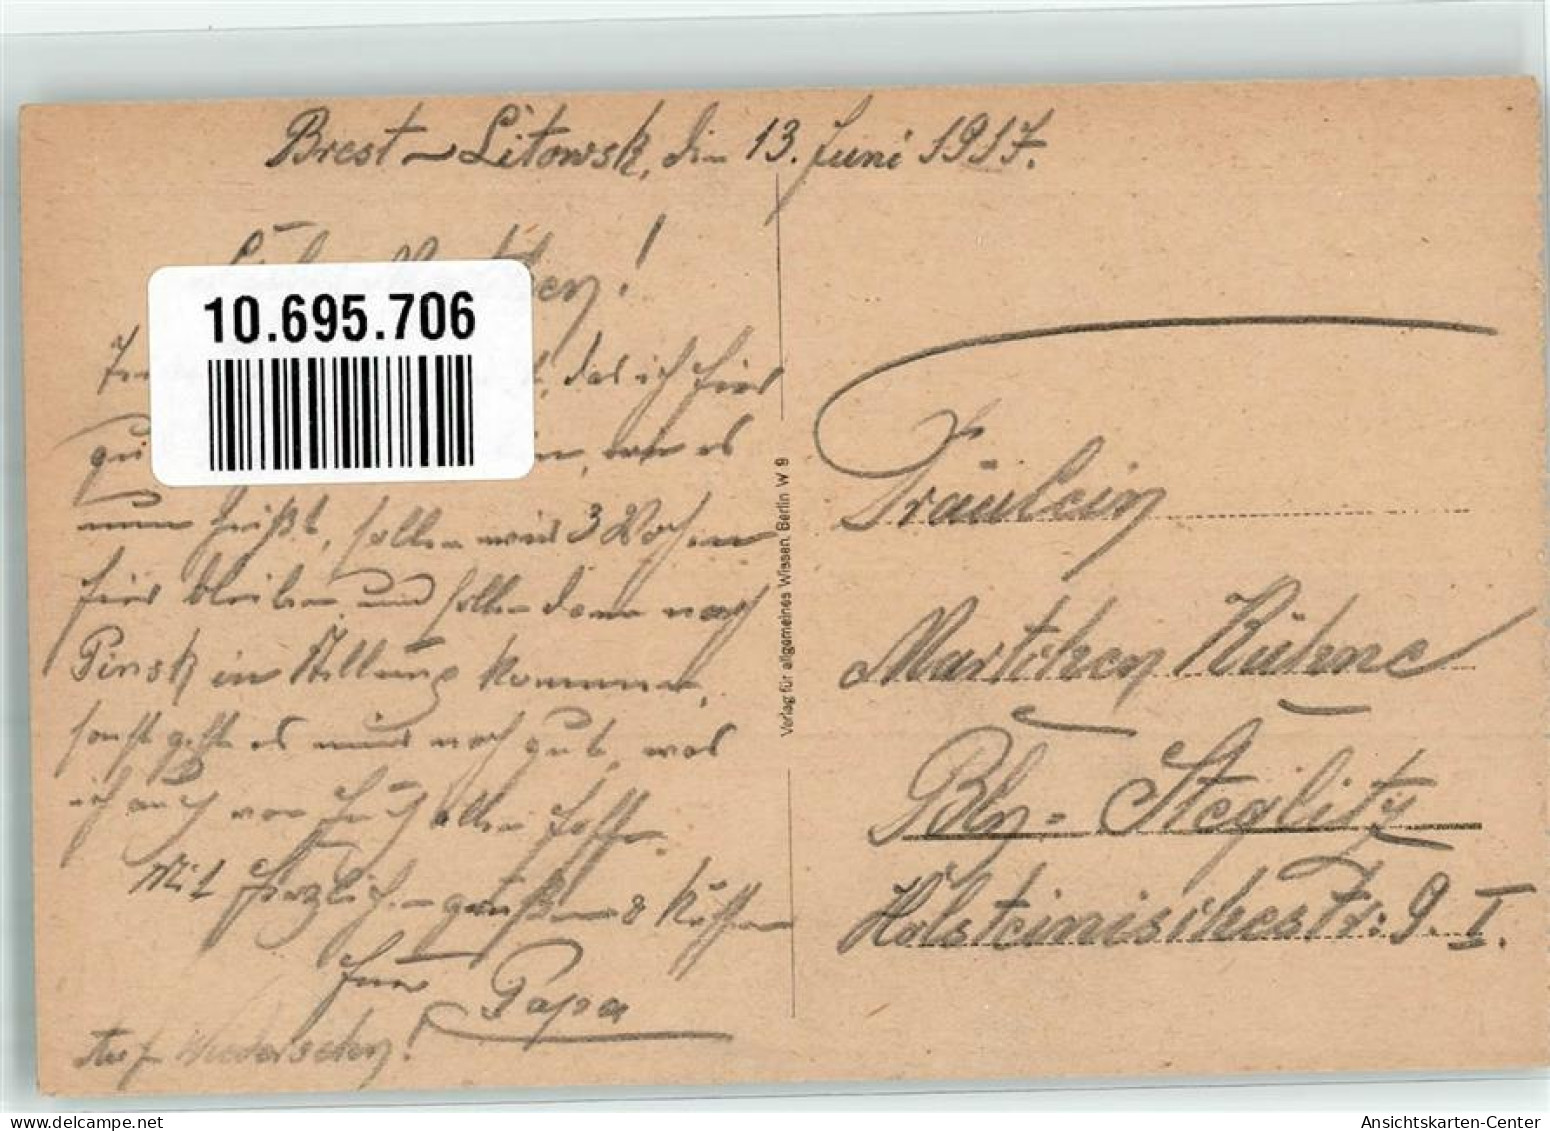 Brest-Litowsk, den 13. Juni 1917.
Liebe !
10.695.706
das ich hier
gu , wie es
nun heißt, sollen wir 3 Wochen
hier bleiben und sollen dann nach
Pinsk in Stellung kommen,
sonst geht es mir noch gut, was
ich auch von Euch allen hoffe.
Mit herzlichen Grüßen & Küssen
Euer Papa
Auf Wiedersehen!
Verlag für allgemeines Wissen, Berlin W 9
Fräulein
Martchen Kühne
Bln-Steglitz
Holsteinischestr: 9. I.
Ansichtskarten-Center